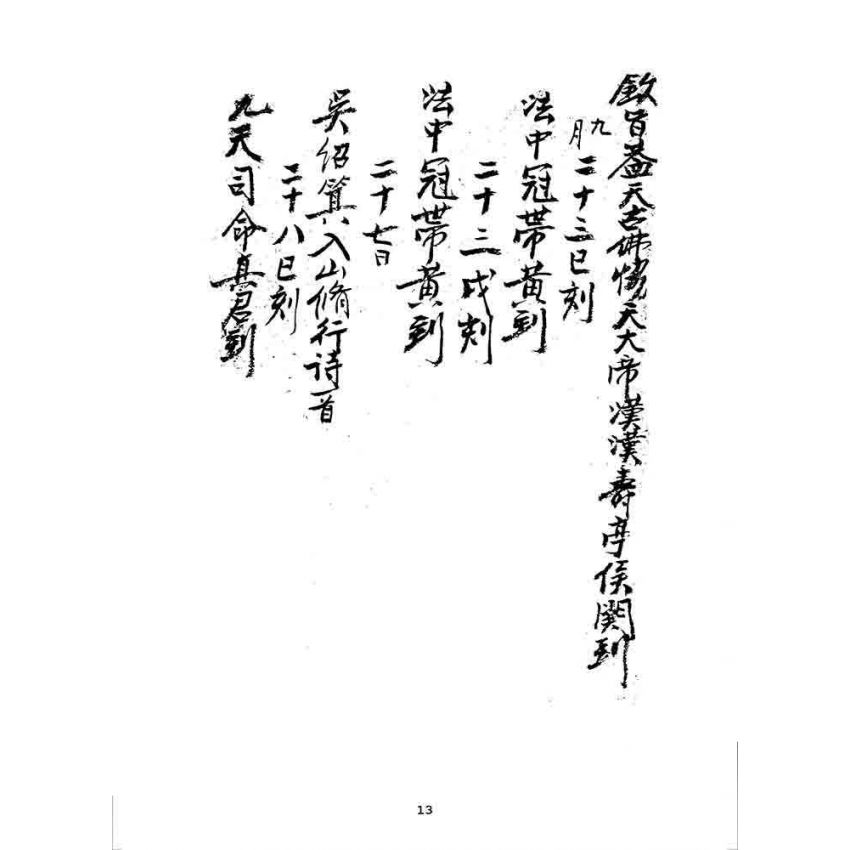 欽旨蓋天古佛協天大帝漢漢壽亭侯関到
九月二十三巳刻
法中冠帶黃到
二十三戌刻
法中冠帶黃到
二十七日
吳紹箕入山脩行詩一首
二十八巳刻
九天司命真君到
13